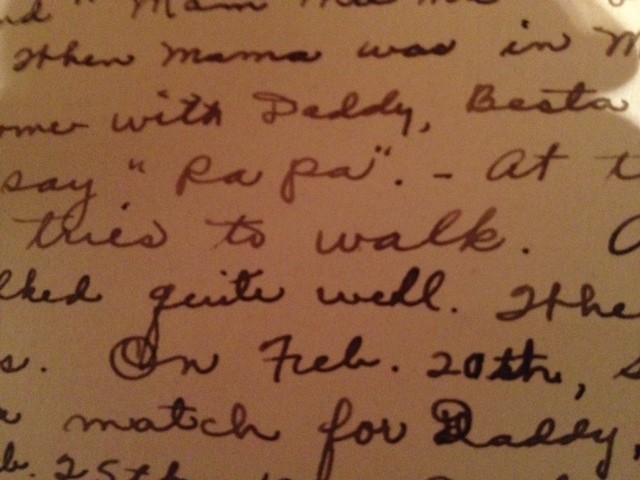 When Mama was in M
with Daddy, Besta
say "Pa pa". - At t
tries to walk.
lked quite well. Whe
s. On Feb. 20th, s
match for Daddy,
b. 25th